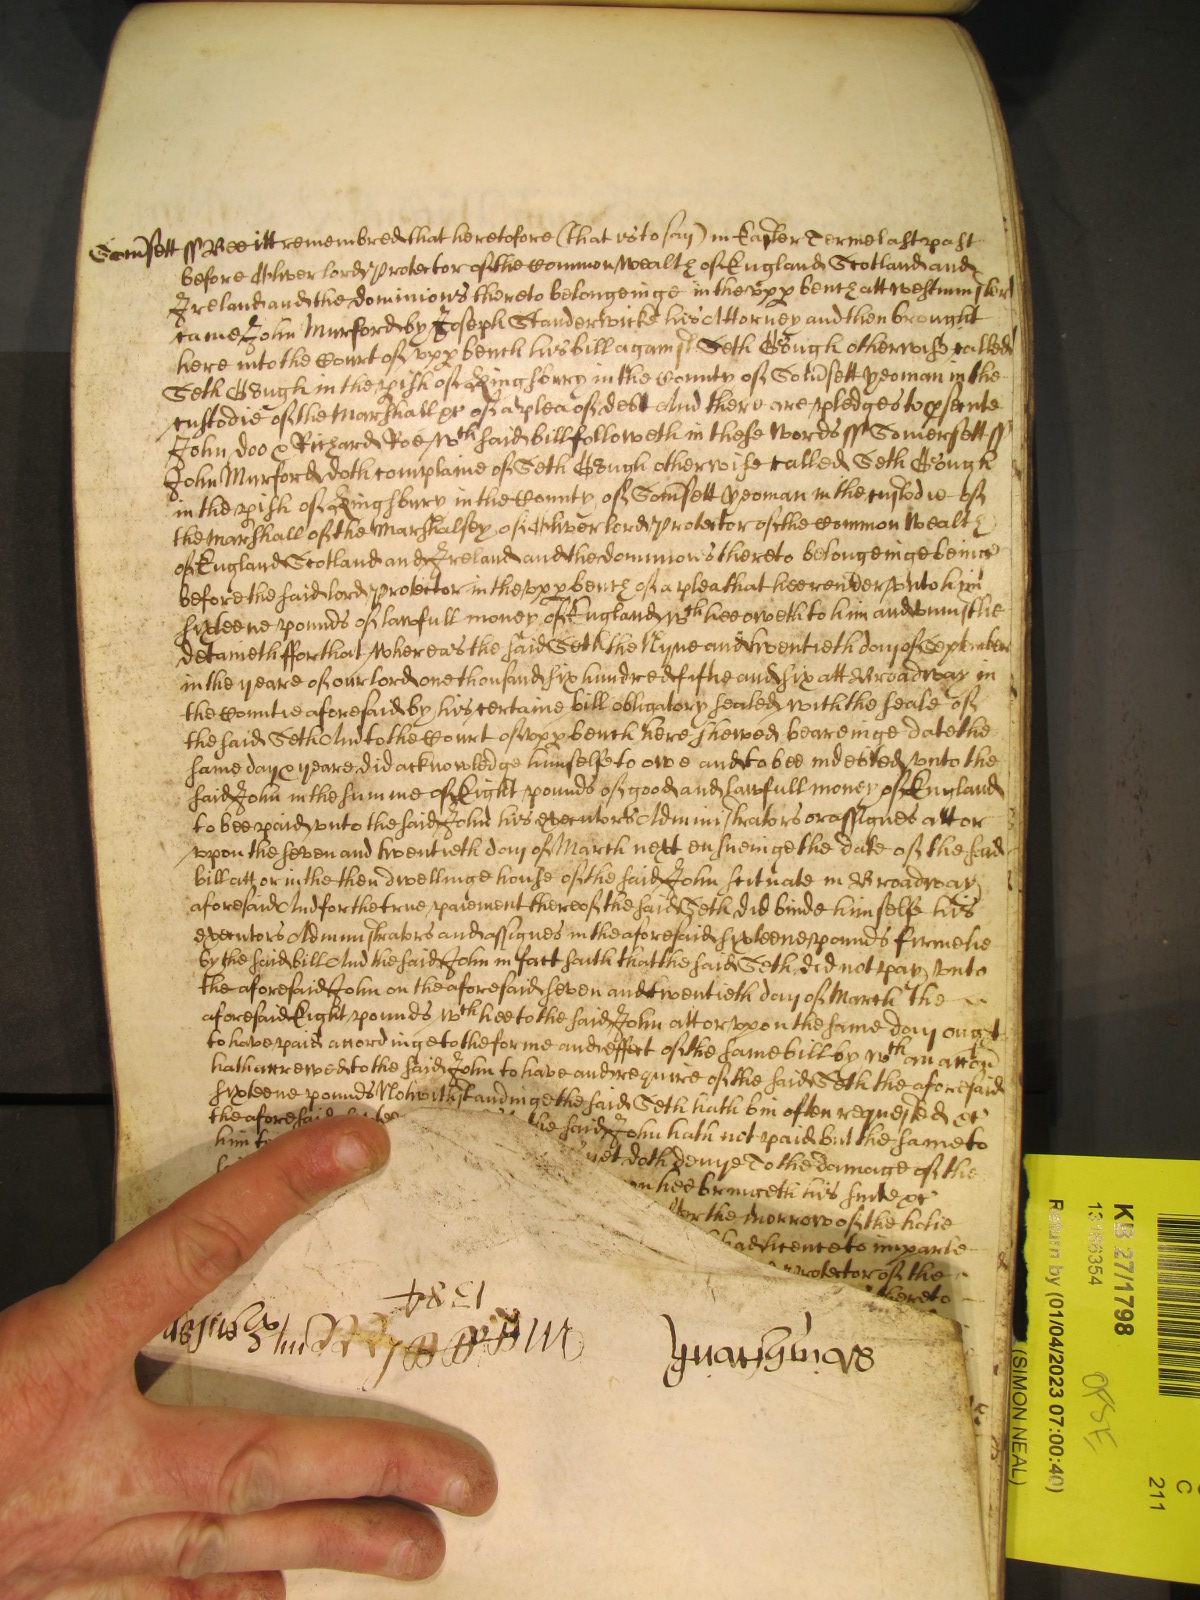 Som̃sett ss Bee itt remembred that heretofore (that is to say) in Easter Terme last past
before Oliver lord Protector of the Common Wealth of England Scotland and
Ireland and the dominions thereto belongeinge in the upp bench att Westminster
came John Murford by Joseph Standerwicke his Attorney and then brought
here into the Court of upp bench his bill against Seth Gough otherwise called
Seth Gough in the pish of Kingsbury in the County of Som̃sett yeoman in the
custodie of the Marshall &c of a plea of debt And there are pledges to psente
John doo & Richard Roe wch said bill followeth in these words ss Somersett ss
John Murford doth complaine of Seth Gough otherwise called Seth Gough
in the pish of Kingsbury in the County of Som̃sett yeoman in the custodie of
the Marshall of the Marshalsey of Oliver lord Protector of the Common Wealth
of England Scotland and Ireland and the dominions thereto belongeinge beinge
before the said lord Protector in the upp bench of a plea that hee render unto him
sixteene pounds of lawfull money of England wch hee oweth to him and uniustlie
detaineth ffor that whereas the said Seth the Nyne and twentieth day of September
in the yeare of our lord one thousand six hundred fiftie and six att Broadway in
the Countie aforesaid by his certaine bill obligatory sealed with the seale of
the said Seth And to the Court of upp bench here shewed beareinge date the
same day & yeare did acknowledge himselfe to owe and to bee indebted unto the
said John in the summe of Eight pounds of good and lawfull money of England
to bee paid unto the said John his executors Administrators or assignes att or
upon the seven and twentieth day of March next ensueinge the date of the said
bill att or in the then dwellinge house of the said John scituate in Broadway
aforesaid And for the true paiement thereof the said Seth did binde himselfe his
executors Administrators and assignes in the aforesaid sixteene pounds firmelie
by the said bill And the said John in fact saith that the said Seth did not pay unto
the aforesaid John on the aforesaid seven and twentieth day of March the
aforesaid Eight pounds wch hee to the said John att or upon the same day ought
to have paid accordinge to the forme and effect of the same bill by wch an accon
hath accrewed to the said John to have and require of the said Seth the aforesaid
sixteene pounds Notwithstandinge the said Seth hath bin often requested &c
the aforesaid the said John hath not paid but the same to
him yet doth denye To the damage of the
hee bringeth his suite &c
the morrow of the holie
had licence to imparle
Protector of the
thereto
1584
KB 27/1798
13166354
Return by (01/04/2023 07:00:40)
(SIMON NEAL)
C
211